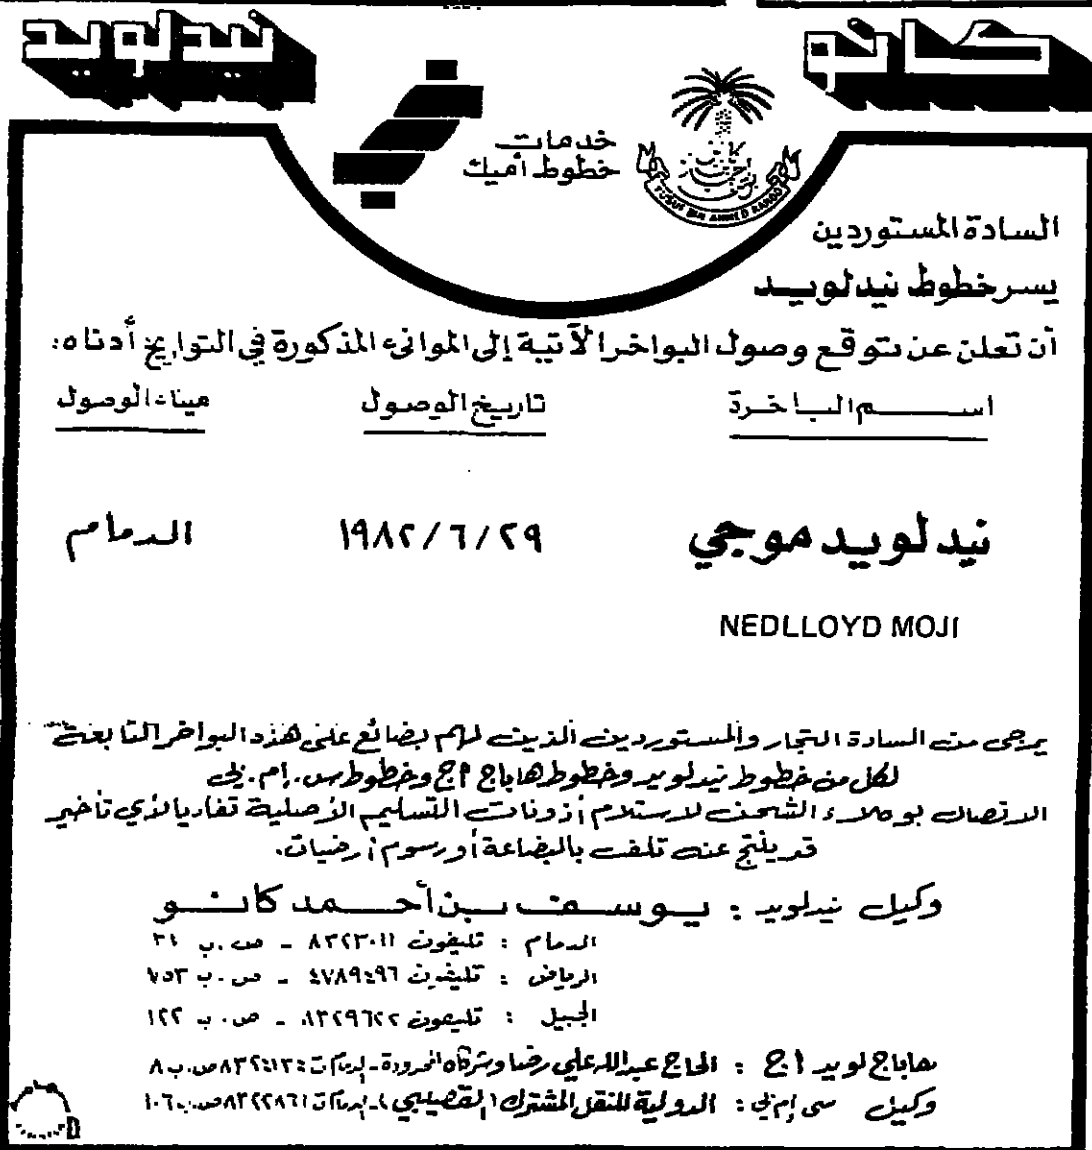 كانو
نيدلويد
خدمات
خطوط أميك
YUSUF BIN AHMED KANOO
السادة المستوردين
يسر خطوط نيدلويد
أن تعلن عن توقع وصول البواخر الآتية إلى الموانئ المذكورة في التواريخ أدناه:
اسم الباخرة تاريخ الوصول ميناء الوصول
نيدلويد موجي ١٩٨٢/٦/٢٩ الدمام
NEDLLOYD MOJI
يرجى من السادة التجار والمستوردين الذين لهم بضائع على هذه البواخر التابعة
لكل من خطوط نيدلويد وخطوط هاباج اج وخطوط س. إم. بي
الاتصال بوكلاء الشحن لاستلام أذونات التسليم الأصلية تفاديا لأي تأخير
قد ينتج عنه تلف بالبضاعة أو رسوم أرضيات.
وكيل نيدلويد : يوسف بن أحمد كانو
الدمام : تليفون ٨٣٢٣٠١١ - ص.ب ٣١
الرياض : تليفون ٤٧٨٩٤٩٦ - ص.ب ٧٥٣
الجبيل : تليفون - ص.ب ١٢٢
هاباج لويد اج : الحاج عبدالله علي رضا وشركاه المحدودة - الدمام ت: ص.ب ٨
وكيل سي إم بي : الدولية للنقل المشترك (القصيبي) - الدمام ت: ٨٣٢٢٨٦١ ص.ب ١٠٦